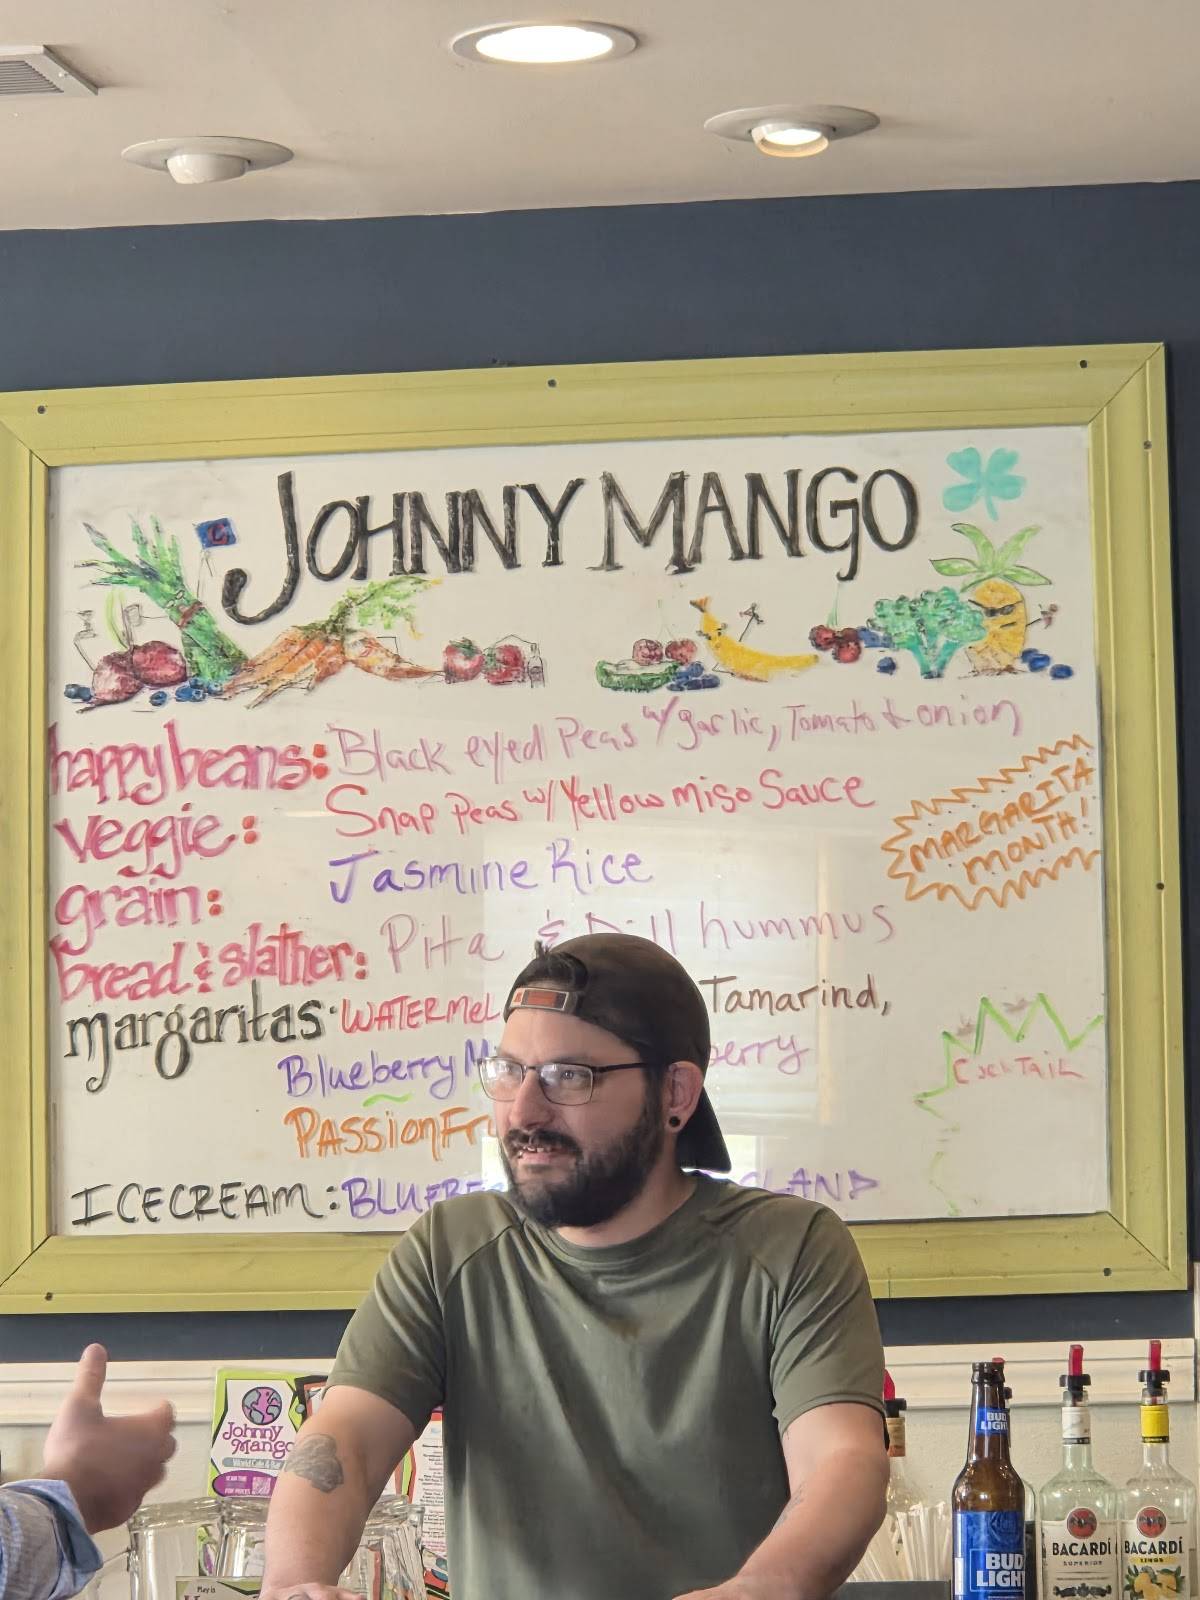 C
JOHNNY MANGO
happy beans: Black eyed Peas w/ garlic, Tomato & onion
veggie: Snap Peas w/ Yellow miso Sauce
grain: Jasmine Rice
bread & slather: Pita & Dill hummus
margaritas: WATERMEL Tamarind,
Blueberry M berry
PASSionFru
ICECREAM: BLUEBE SLAND
MARGARITA
MONTH!
COCKTAIL
Johnny
Mango
World Cafe & Bar
Play is
BUD
LIGHT
BUD
LIGHT
BACARDÍ
SUPERIOR
BACARDÍ
LIMÓN